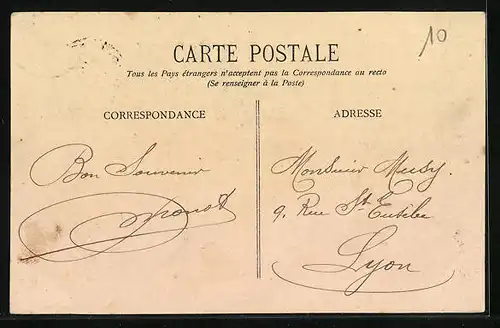 10
CARTE POSTALE
Tous les Pays étrangers n'acceptent pas la Correspondance au recto
(Se renseigner à la Poste)
CORRESPONDANCE
Bon Souvenir
ADRESSE
Monsieur Musy.
9, Rue St
Lyon